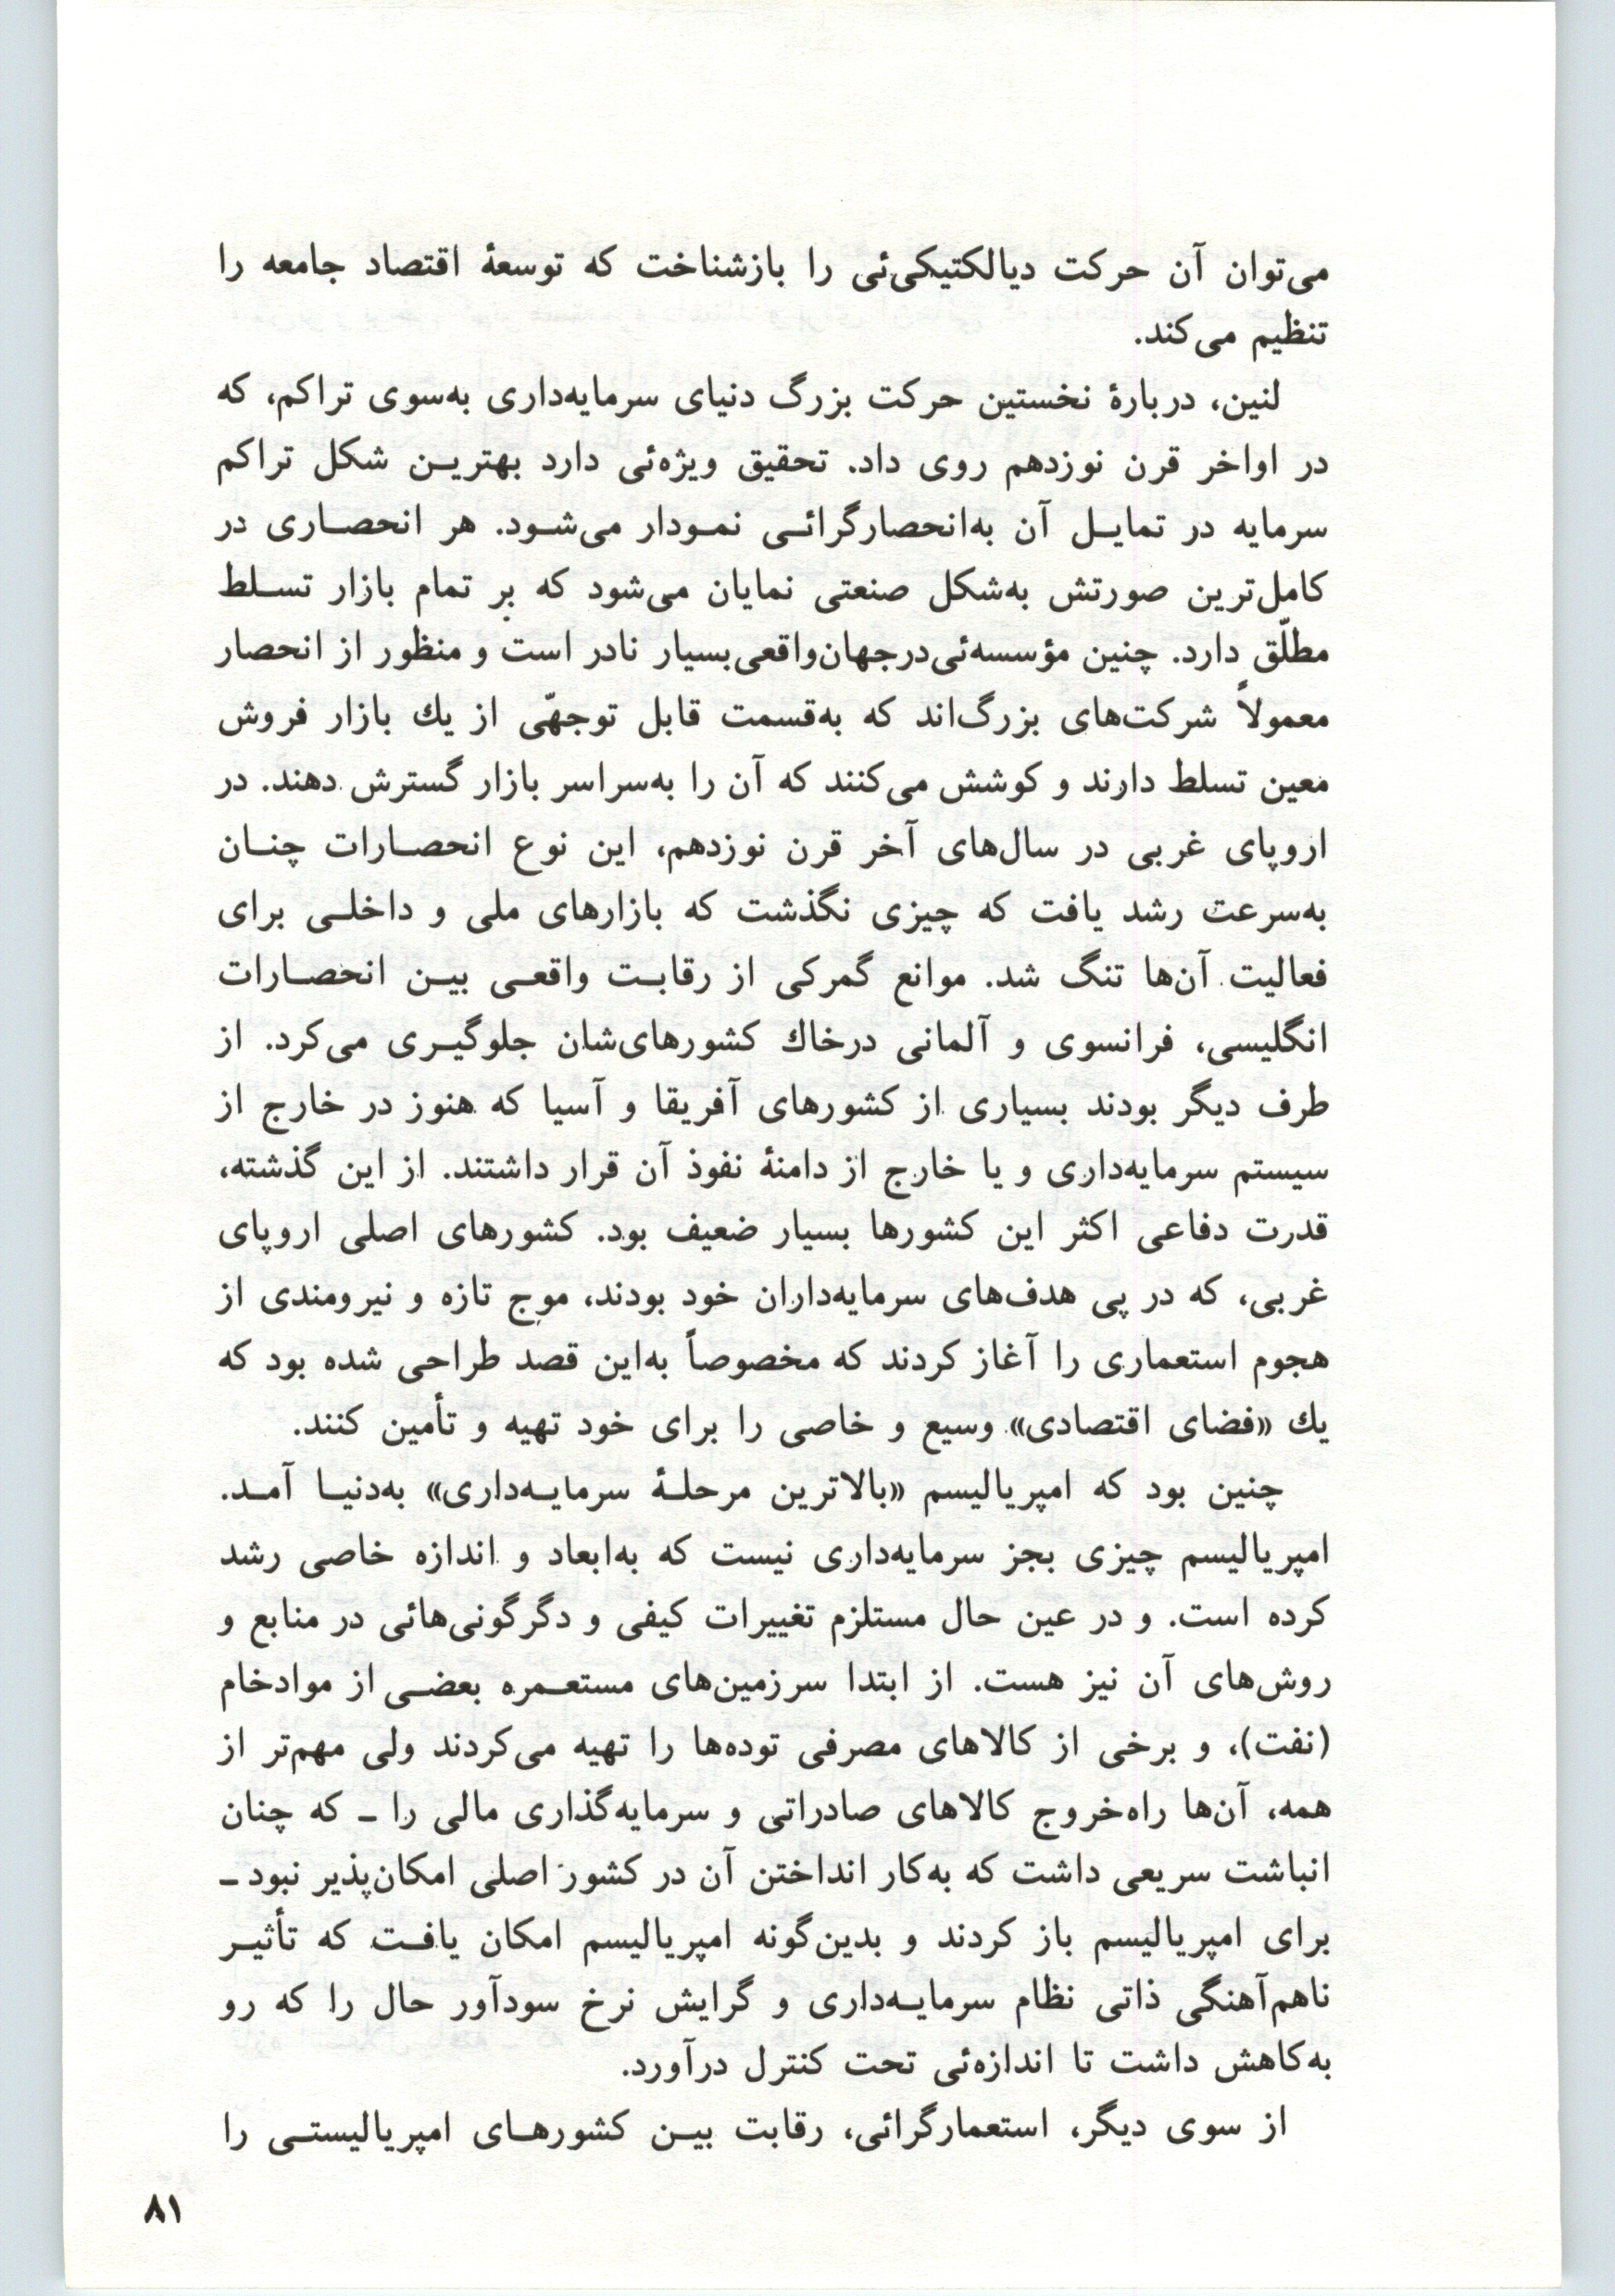 می‌توان آن حرکت دیالکتیکی‌ئی را بازشناخت که توسعهٔ اقتصاد جامعه را
تنظیم می‌کند.
لنین، دربارهٔ نخستین حرکت بزرگ دنیای سرمایه‌داری به‌سوی تراکم، که
در اواخر قرن نوزدهم روی داد. تحقیق ویژه‌ئی دارد بهتریـن شکل تراکم
سرمایه در تمایـل آن به‌انحصارگرائـی نمـودار می‌شـود. هر انحصـاری در
کامل‌ترین صورتش به‌شکل صنعتی نمایان می‌شود که بر تمام بازار تسـلط
مطلّق دارد. چنین مؤسسه‌ئی‌درجهان‌واقعی‌بسیار نادر است و منظور از انحصار
معمولاً شرکت‌های بزرگ‌اند که به‌قسمت قابل توجهّی از یك بازار فروش
معین تسلط دارند و کوشش می‌کنند که آن را به‌سراسر بازار گسترش دهند. در
اروپای غربی در سال‌های آخر قرن نوزدهم، این نوع انحصـارات چنـان
به‌سرعت رشد یافت که چیزی نگذشت که بازارهای ملی و داخلـی برای
فعالیت آن‌ها تنگ شد. موانع گمرکی از رقابـت واقعـی بیـن انحصـارات
انگلیسی، فرانسوی و آلمانی درخاك کشورهای‌شان جلوگیـری می‌کرد. از
طرف دیگر بودند بسیاری از کشورهای آفریقا و آسیا که هنوز در خارج از
سیستم سرمایه‌داری و یا خارج از دامنهٔ نفوذ آن قرار داشتند. از این گذشته،
قدرت دفاعی اکثر این کشورها بسیار ضعیف بود. کشورهای اصلی اروپای
غربی، که در پی هدف‌های سرمایه‌داران خود بودند، موج تازه و نیرومندی از
هجوم استعماری را آغاز کردند که مخصوصاً به‌این قصد طراحی شده بود که
یك «فضای اقتصادی» وسیع و خاصی را برای خود تهیه و تأمین کنند.
چنین بود که امپریالیسم «بالاترین مرحلـهٔ سرمایـه‌داری» به‌دنیـا آمـد.
امپریالیسم چیزی بجز سرمایه‌داری نیست که به‌ابعاد و اندازه خاصی رشد
کرده است. و در عین حال مستلزم تغییرات کیفی و دگرگونی‌هائی در منابع و
روش‌های آن نیز هست. از ابتدا سرزمین‌های مستعـمره بعضـی از موادخام
(نفت)، و برخی از کالاهای مصرفی توده‌ها را تهیه می‌کردند ولی مهم‌تر از
همه، آن‌ها راه‌خروج کالاهای صادراتی و سرمایه‌گذاری مالی را ـ که چنان
انباشت سریعی داشت که به‌کار انداختن آن در کشور اصلی امکان‌پذیر نبود ـ
برای امپریالیسم باز کردند و بدین‌گونه امپریالیسم امکان یافـت که تأثیـر
ناهم‌آهنگی ذاتی نظام سرمایـه‌داری و گرایش نرخ سودآور حال را که رو
به‌کاهش داشت تا اندازه‌ئی تحت کنترل درآورد.
از سوی دیگر، استعمارگرائی، رقابت بیـن کشورهـای امپریالیستـی را
۸۱